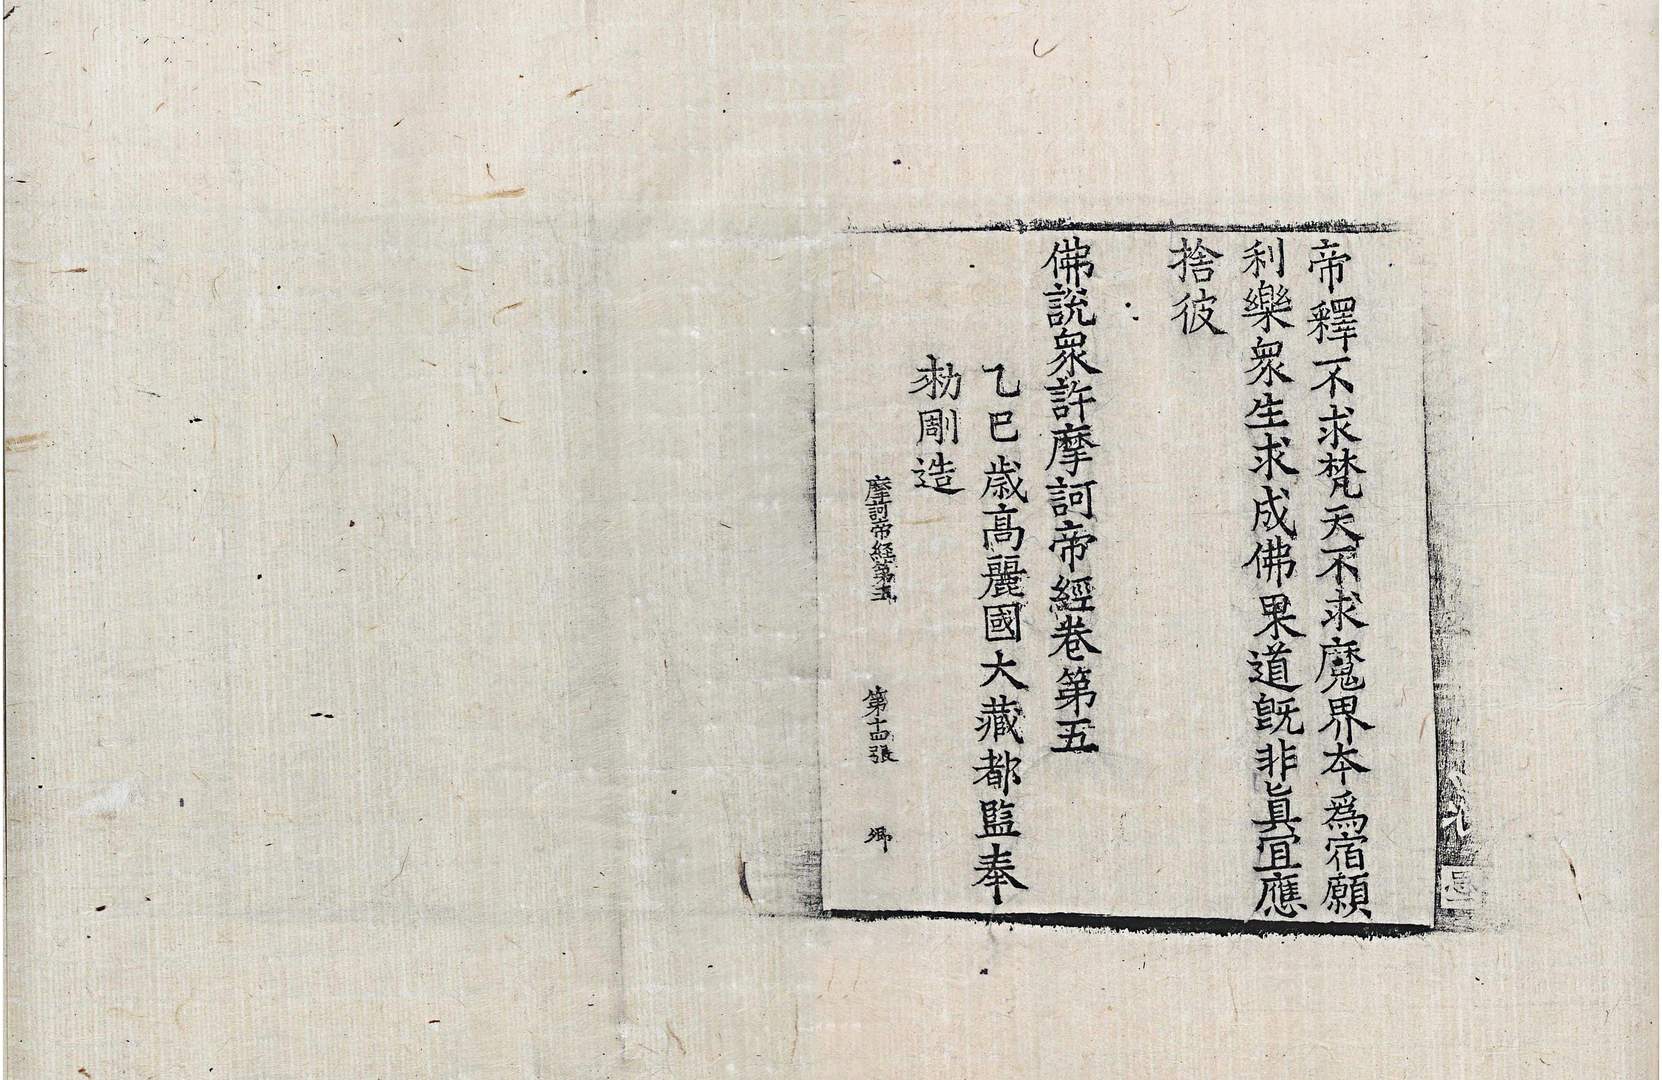 帝釋不求梵天不求魔界本爲宿願
利樂衆生求成佛果道旣非眞宜應
捨彼
佛說衆許摩訶帝經卷第五
乙巳歲高麗國大藏都監奉
勑彫造
摩訶帝經第五 第十四張 鄉